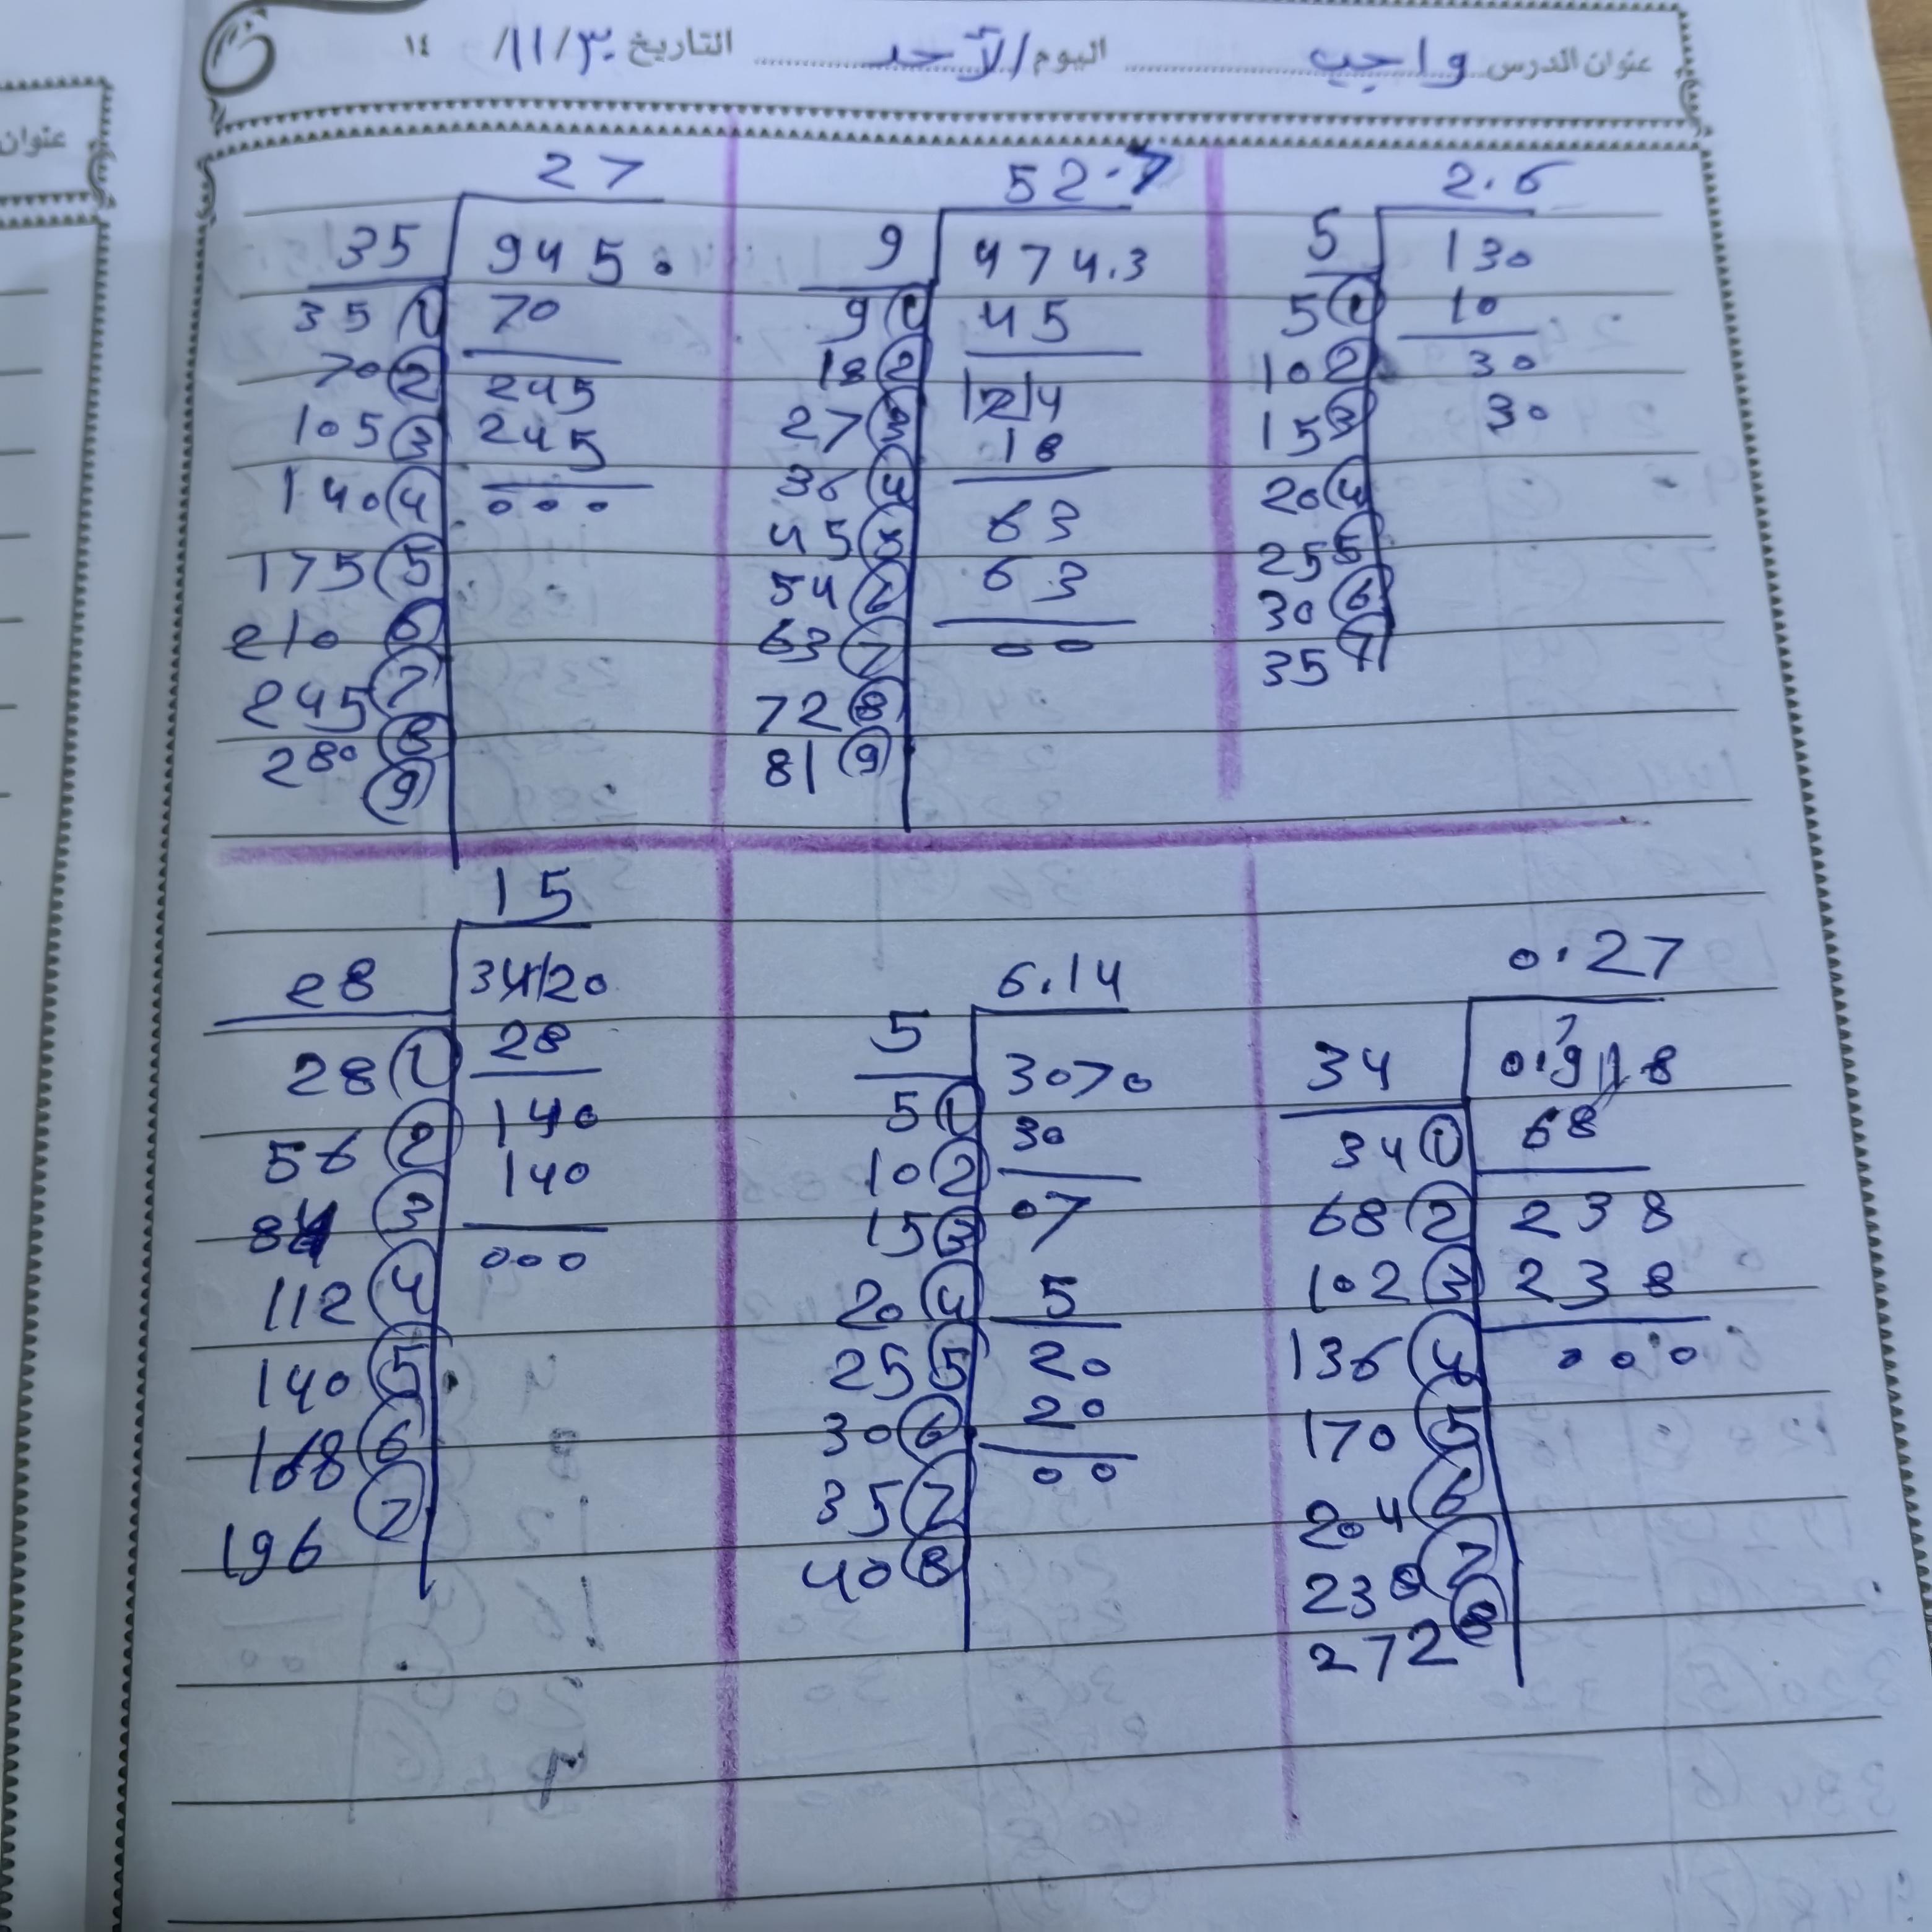 عنوان الدرس واجب اليوم الأحد التاريخ ٣٠/١١/ ١٤
عنوان
27
35 945.
35 1 70
70 2 245
105 3 245
140 4 000
175 5
210 6
245 7
280 8
9
52.7
9 474.3
9 1 45
18 2 24
27 3 18
36 4 63
45 5 63
54 6 00
63 7
72 8
81 9
2.6
5 130
5 1 10
10 2 30
15 3 30
20 4
25 5
30 6
35 7
15
28 3420
28 1 28
56 2 140
84 3 140
112 4 000
140 5
168 6
196 7
6.14
5 3070
5 1 30
10 2 07
15 3 5
20 4 20
25 5 20
30 6 00
35 7
40 8
0.27
34 0.918
34 1 68
68 2 238
102 3 238
136 4 000
170 5
204 6
238 7
272 8